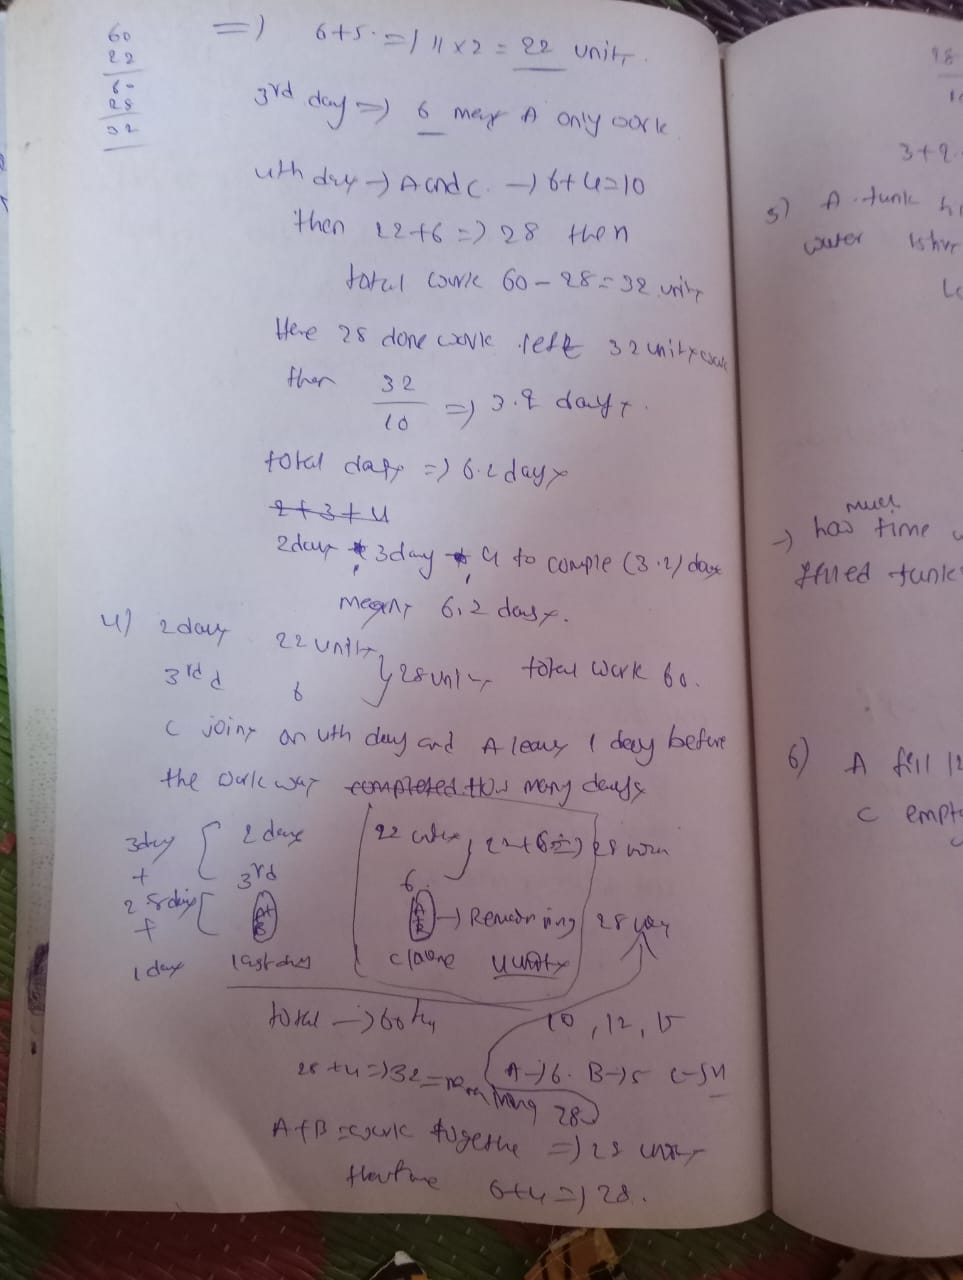 60
22
60
28
32
=) 6+5 =) 11 x 2 = 22 unit
3rd day =) 6 means A only work
4th day -) A and C. -) 6+4=10
then 22+6 =) 28 then
total work 60 - 28 = 32 units
Here 28 done work left 32 units work
then 32/10 =) 3.2 days.
total days =) 6.2 days
2+3+4
2days, 3day, 4 to comple (3.2) days
means 6.2 days.
4) 2days 22 units
3rd d 6 } 28 units total work 60.
C joins on 4th day and A leavs 1 day before
the work was completed. How many days
3day { 2 days 22 work } 22+6 =) 28 work
+ 3rd 6
2.8 days [ A+B A+B -) Remaining 28 work
+
1 day last day C alone 4 units
total -) 60
10, 12, 15
28+4=) 32 = remaining 28
A-)6. B-)5 C-)4
A+B work togethe =) 28 units
6+4 =) 28.
18
3+2
5) A tank
water
Lc
much
-) has time
filled tank
6) A fill 12
C empt